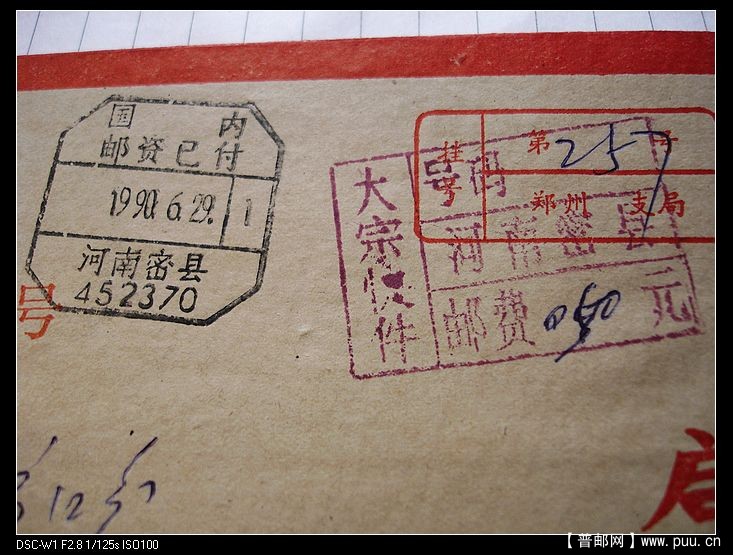 国内
邮资已付
1990.6.29.
1
河南密县
452370
大宗快件
号码
河南密县
邮费 050 元
挂号
第 257 号
郑州 支局
号
启
DSC-W1 F2.8 1/125s ISO100
【普邮网】www.puu.cn